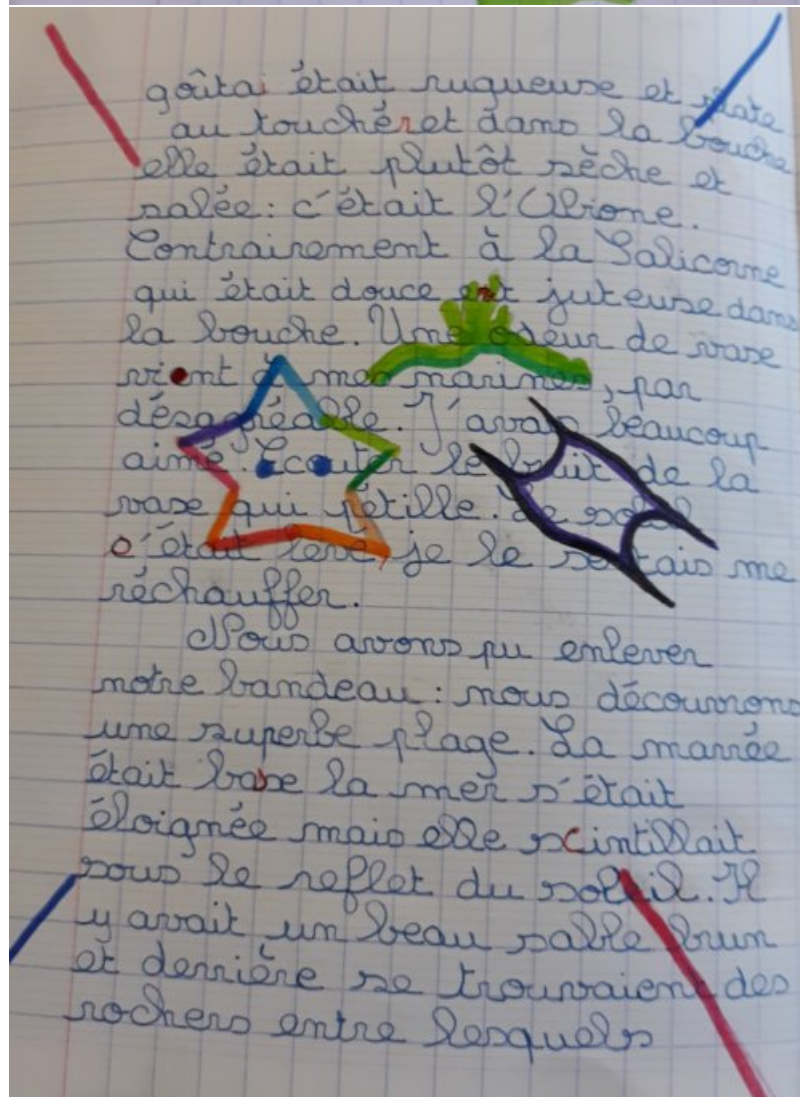 goûtai était rugueuse et plate
au touchéret dans la bouche
elle était plutôt sèche et
salée: c'était l'Obione.
Contrairement à la Salicorne
qui était douce et juteuse dans
la bouche. Une odeur de vase
vient à mes narines, pas
désagréable. J'avais beaucoup
aimé. Ecouter le bruit de la
vase qui pétille. Le soleil
c'était levé je le sentais me
réchauffer.
Nous avons pu enlever
notre bandeau: nous découvrons
une superbe plage. La marrée
était base la mer s'était
éloignée mais elle scintillait
sous le reflet du soleil. Il
y avait un beau sable brun
et derrière se trouvaient des
rochers entre lesquels